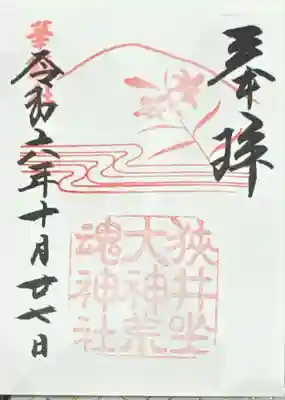 奉拝
狭井坐
大神荒
魂神社
華
令和六年十月廿七日